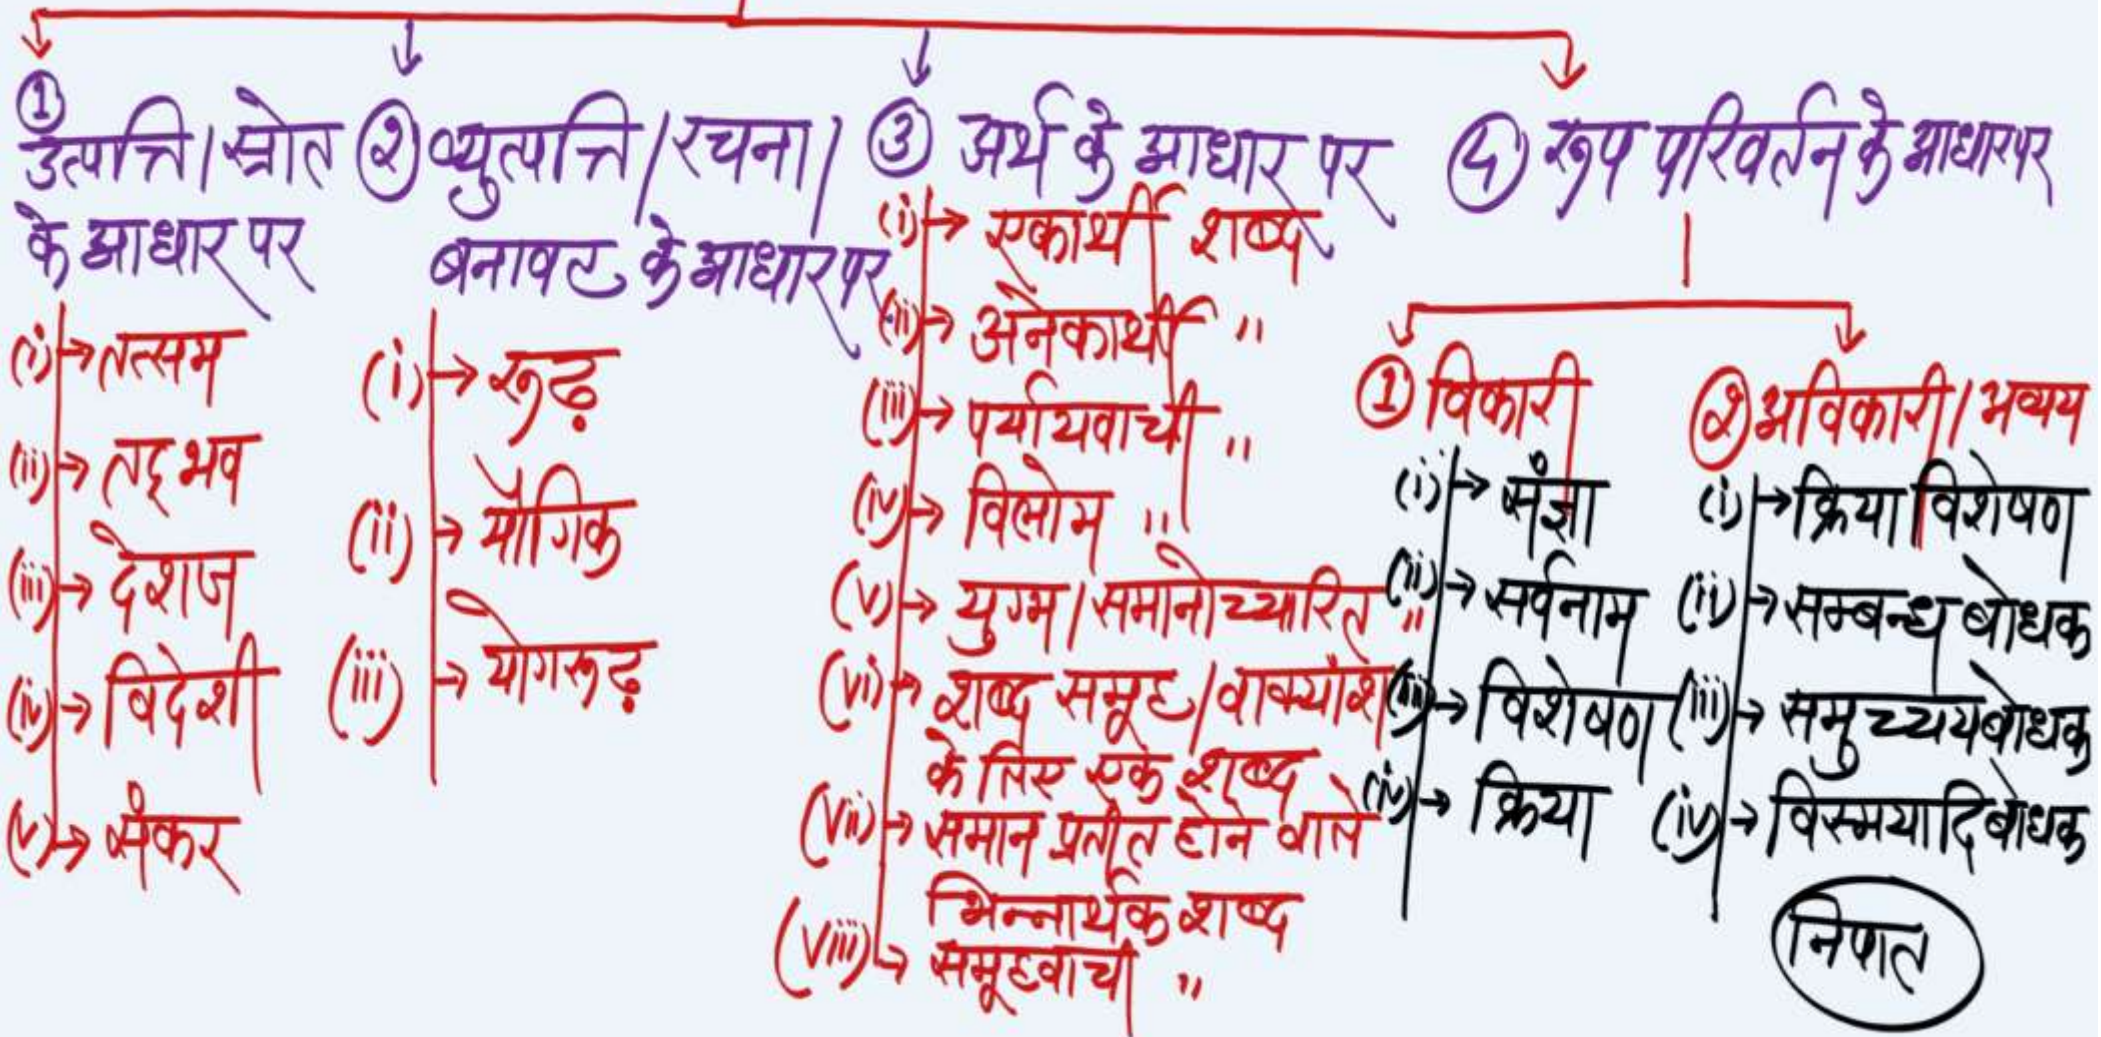 ① उत्पत्ति/स्रोत
के आधार पर
(i) → तत्सम
(ii) → तद्भव
(iii) → देशज
(iv) → विदेशी
(v) → संकर
② व्युत्पत्ति/रचना/
बनावट के आधार पर
(i) → रूढ़
(ii) → यौगिक
(iii) → योगरूढ़
③ अर्थ के आधार पर
(i) → एकार्थी शब्द
(ii) → अनेकार्थी "
(iii) → पर्यायवाची "
(iv) → विलोम "
(v) → युग्म/समानोच्चारित "
(vi) → शब्द समूह/वाक्यांश
के लिए एक शब्द
(vii) → समान प्रतीत होने वाले
भिन्नार्थक शब्द
(viii) → समूहवाची "
④ रूप परिवर्तन के आधार पर
① विकारी
(i) → संज्ञा
(ii) → सर्वनाम
(iii) → विशेषण
(iv) → क्रिया
② अविकारी/अव्यय
(i) → क्रिया विशेषण
(ii) → सम्बन्ध बोधक
(iii) → समुच्चयबोधक
(iv) → विस्मयादिबोधक
निपात